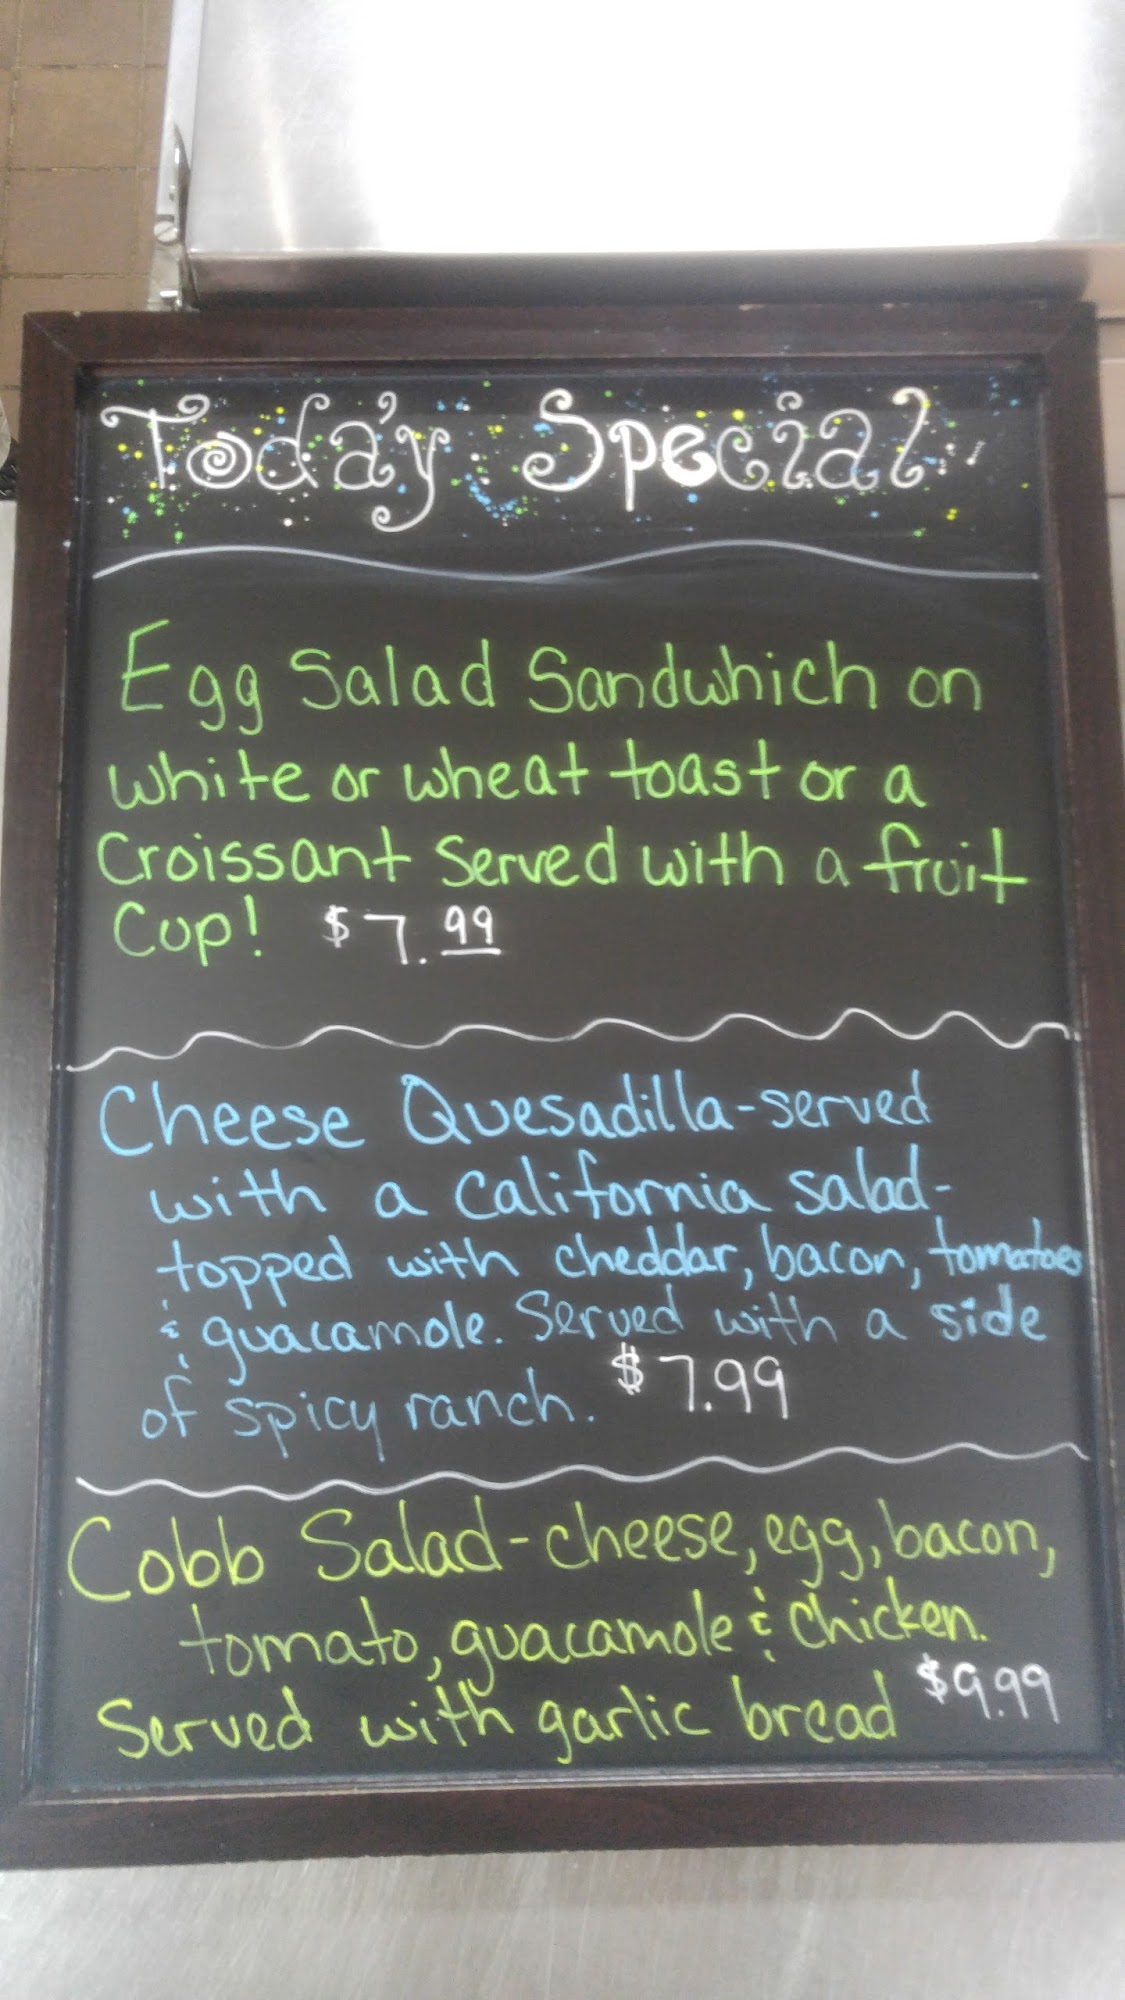 Today Special
Egg Salad Sandwhich on
white or wheat toast or a
Croissant Served with a fruit
Cup! $7.99
Cheese Quesadilla-served
with a California salad-
topped with cheddar, bacon, tomatoes
& guacamole. Served with a side
of spicy ranch. $7.99
Cobb Salad-cheese, egg, bacon,
tomato, guacamole & Chicken.
Served with garlic bread $9.99